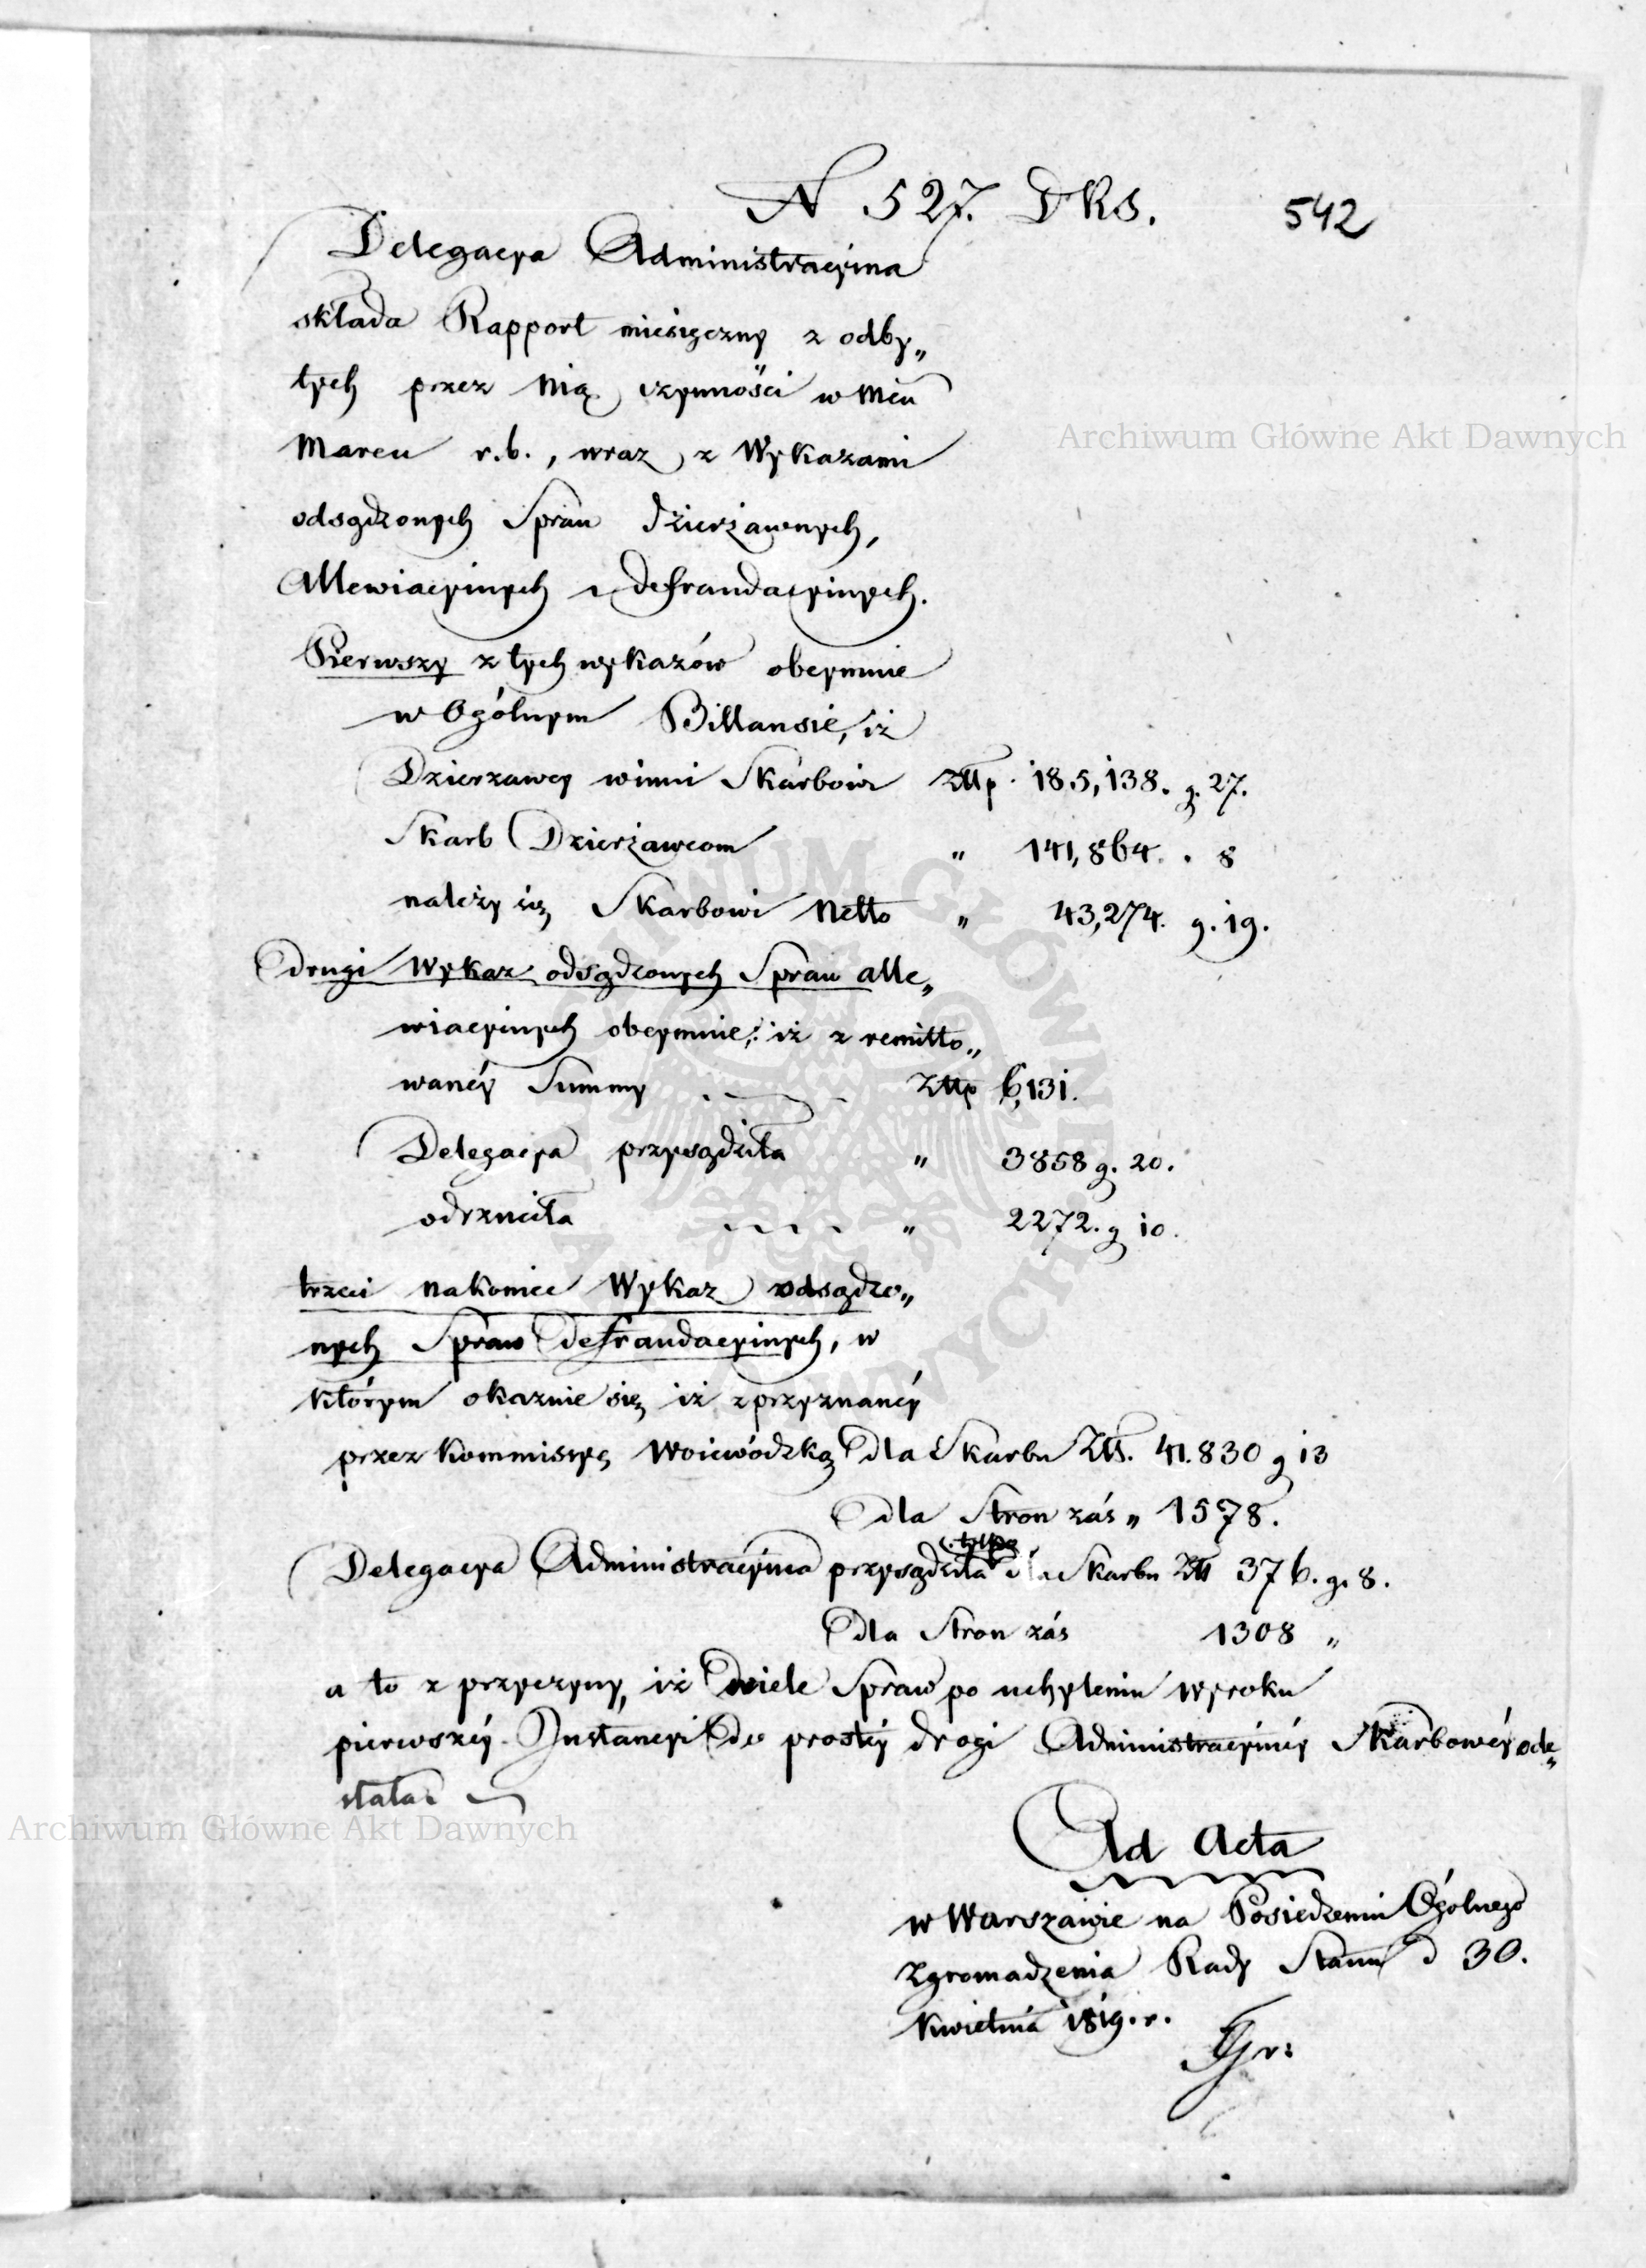 N 527. DKS. 542
Delegacya Administracyina
składa Rapport miesięczny z odby„
tych przez Nią czynności w Mcu
Marcu r.b., wraz z Wykazami
odsądzonych Spraw Dzierżawnych,
Allewiacyinych i defraudacyinych.
Pierwszy z tych wykazów obeymuie
w Ogólnym Billansie, iż
Dzierzawcy winni Skarbowi Złłp. 185,138. g. 27.
Skarb Dzierżawcom „ 141,864. . 8
należy się Skarbowi Netto „ 43,274. g. 19.
drugi Wykaz odsądzonych Spraw alle„
wiacyinych obeymuie, iż z remitto„
wanéy Summy Złłp 6,131.
Delegacya przysądziła „ 3858 g. 20.
odrzuciła „ 2272. g 10.
trzeci nakoniec Wykaz odsądzo„
nych Spraw defraudacyinych, w
którym okazuie się iż z przyznanéy
przez Kommissyę Woiewódzką dla Skarbu Złł. 41.830 g 13
dla Stron zás „ 1578.
tylko
Delegacya Administracyina przysądziła dla Skarbu Złł 376. g. 8.
dla Stron zás 1308 „
a to z przyczyny, iż wiele Spraw po uchyleniu wyroku
pierwszéy Instancyi do prostéy drogi Administracyinéy Skarbowéy ode„
słała
Archiwum Główne Akt Dawnych
Ad Acta
w Warszawie na Posiedzeniu Ogólnego
Zgromadzenia Rady Stanu d 30.
Kwietnia 1819. r.
Archiwum Główne Akt Dawnych